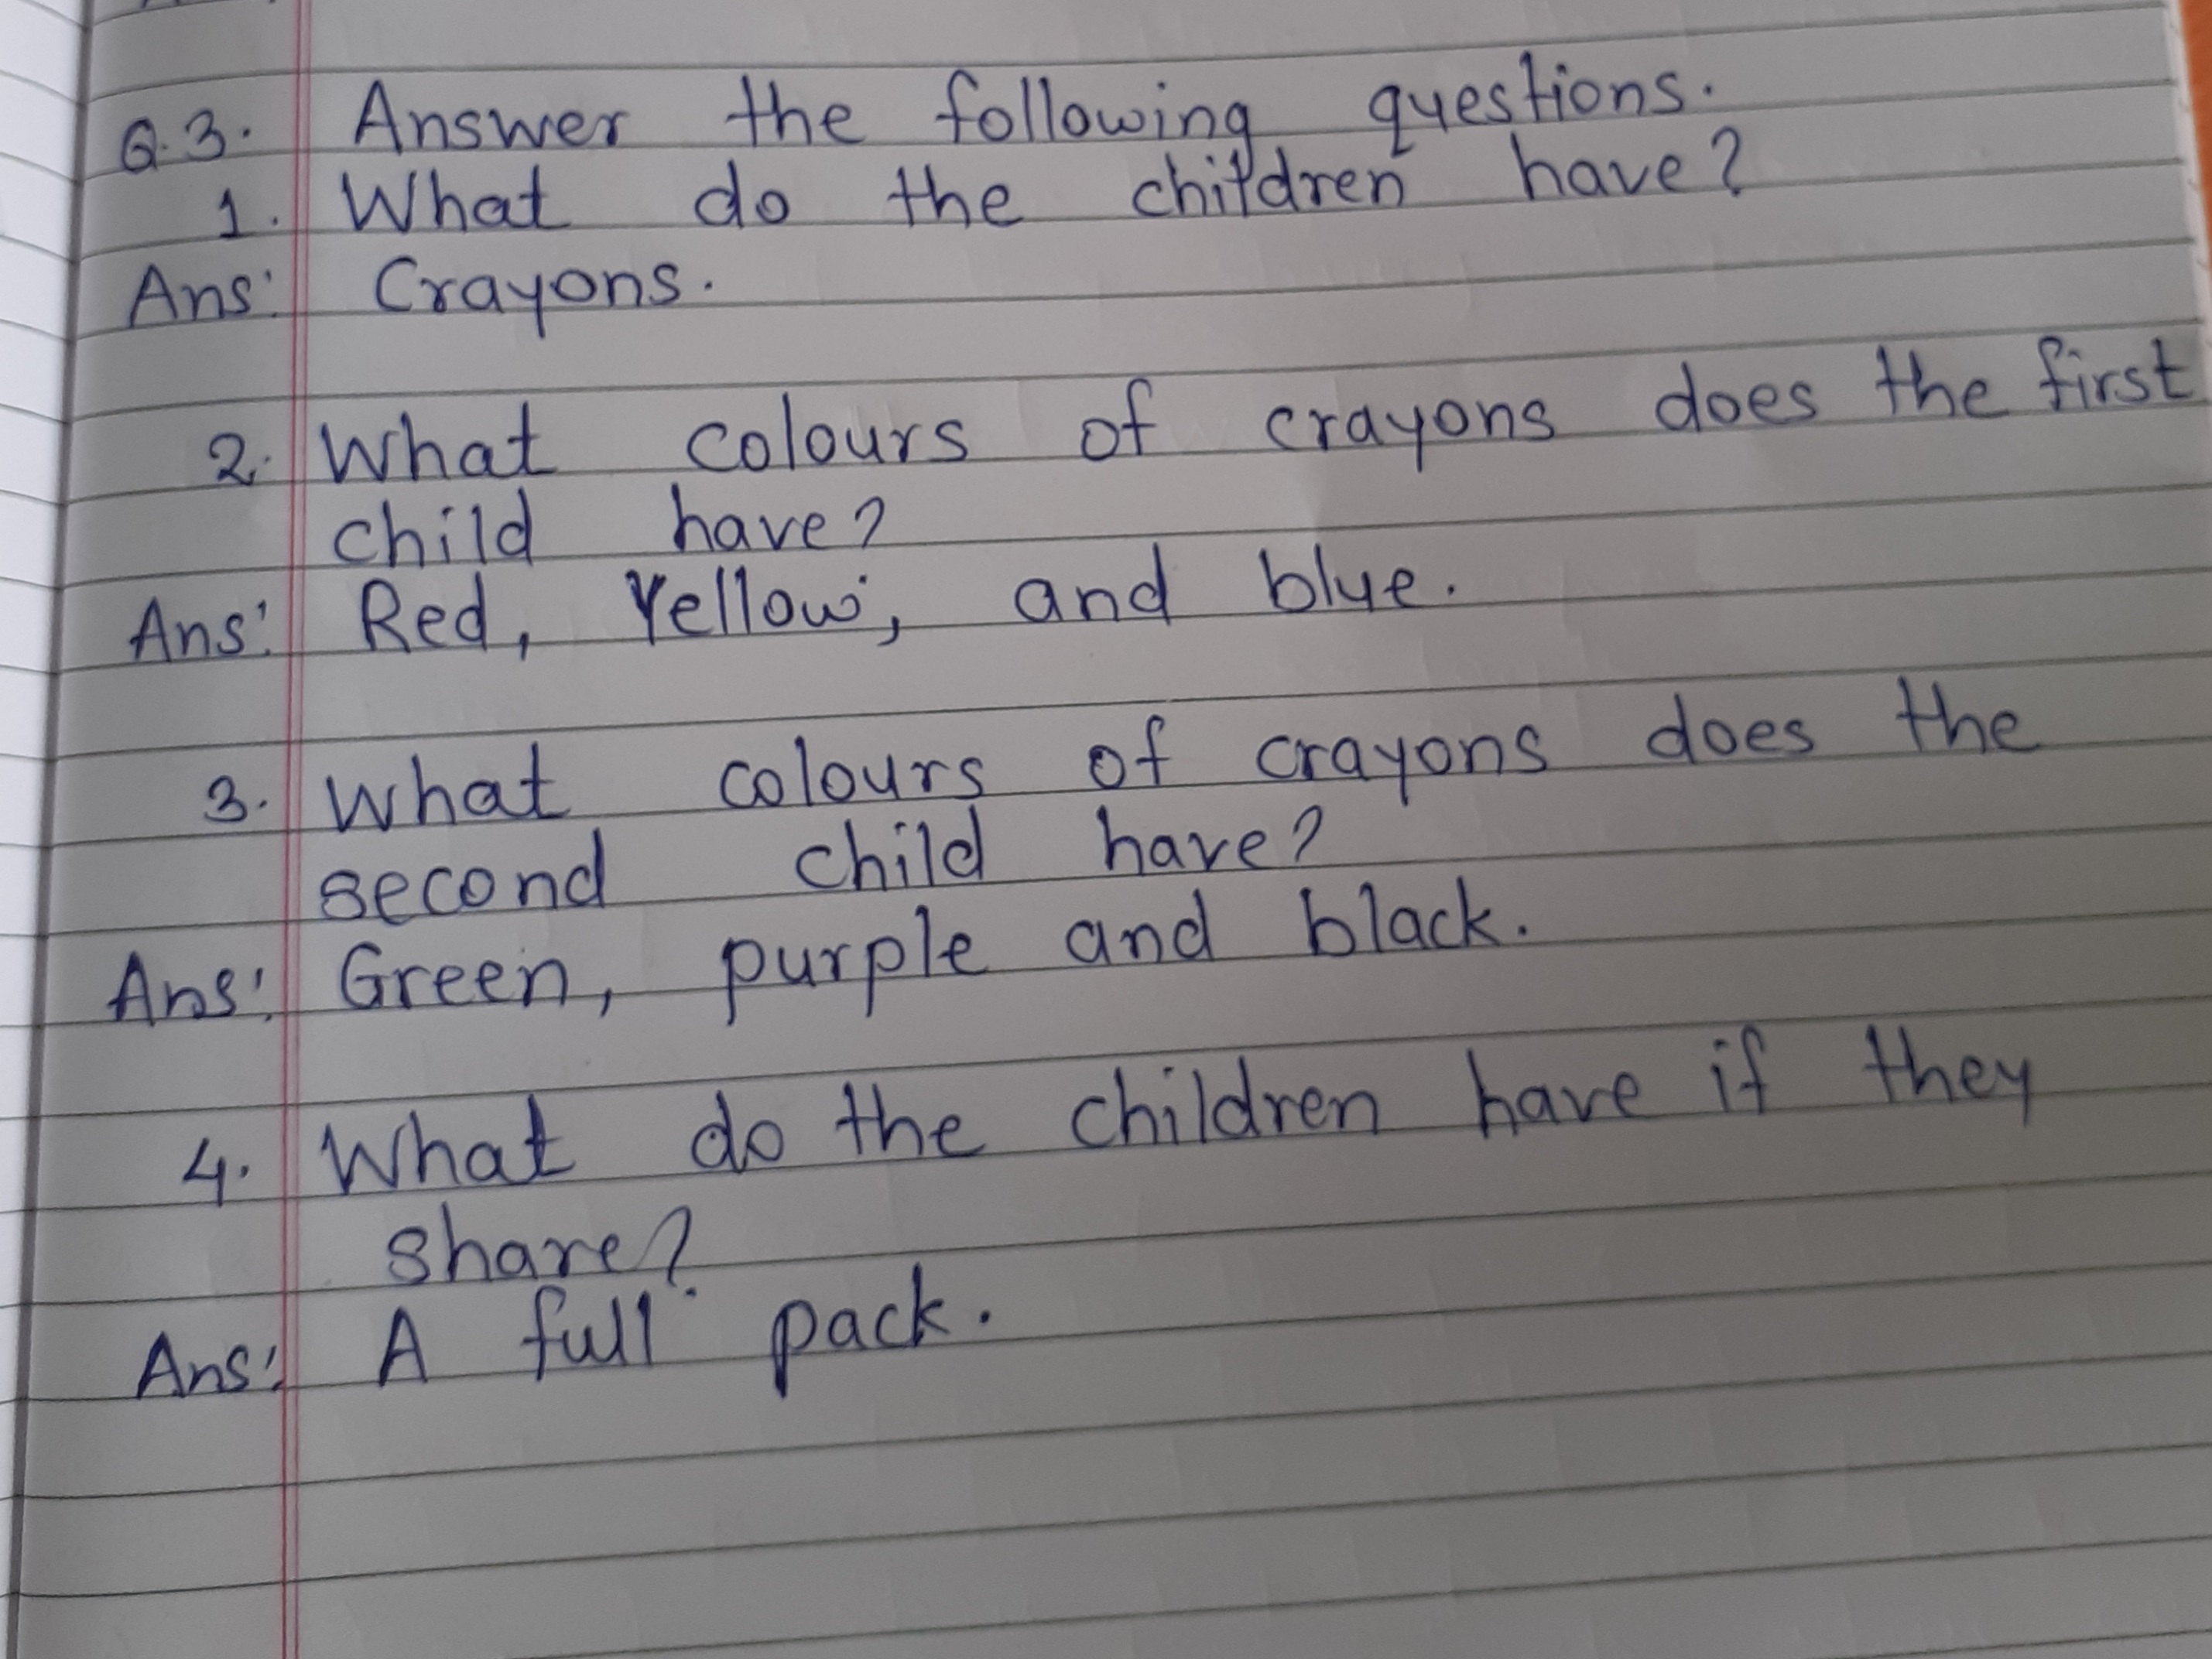 Q.3. Answer the following questions.
1. What do the children have?
Ans: Crayons.
2. What colours of crayons does the first
child have?
Ans: Red, Yellow, and blue.
3. What colours of crayons does the
second child have?
Ans: Green, purple and black.
4. What do the children have if they
share?
Ans: A full pack.